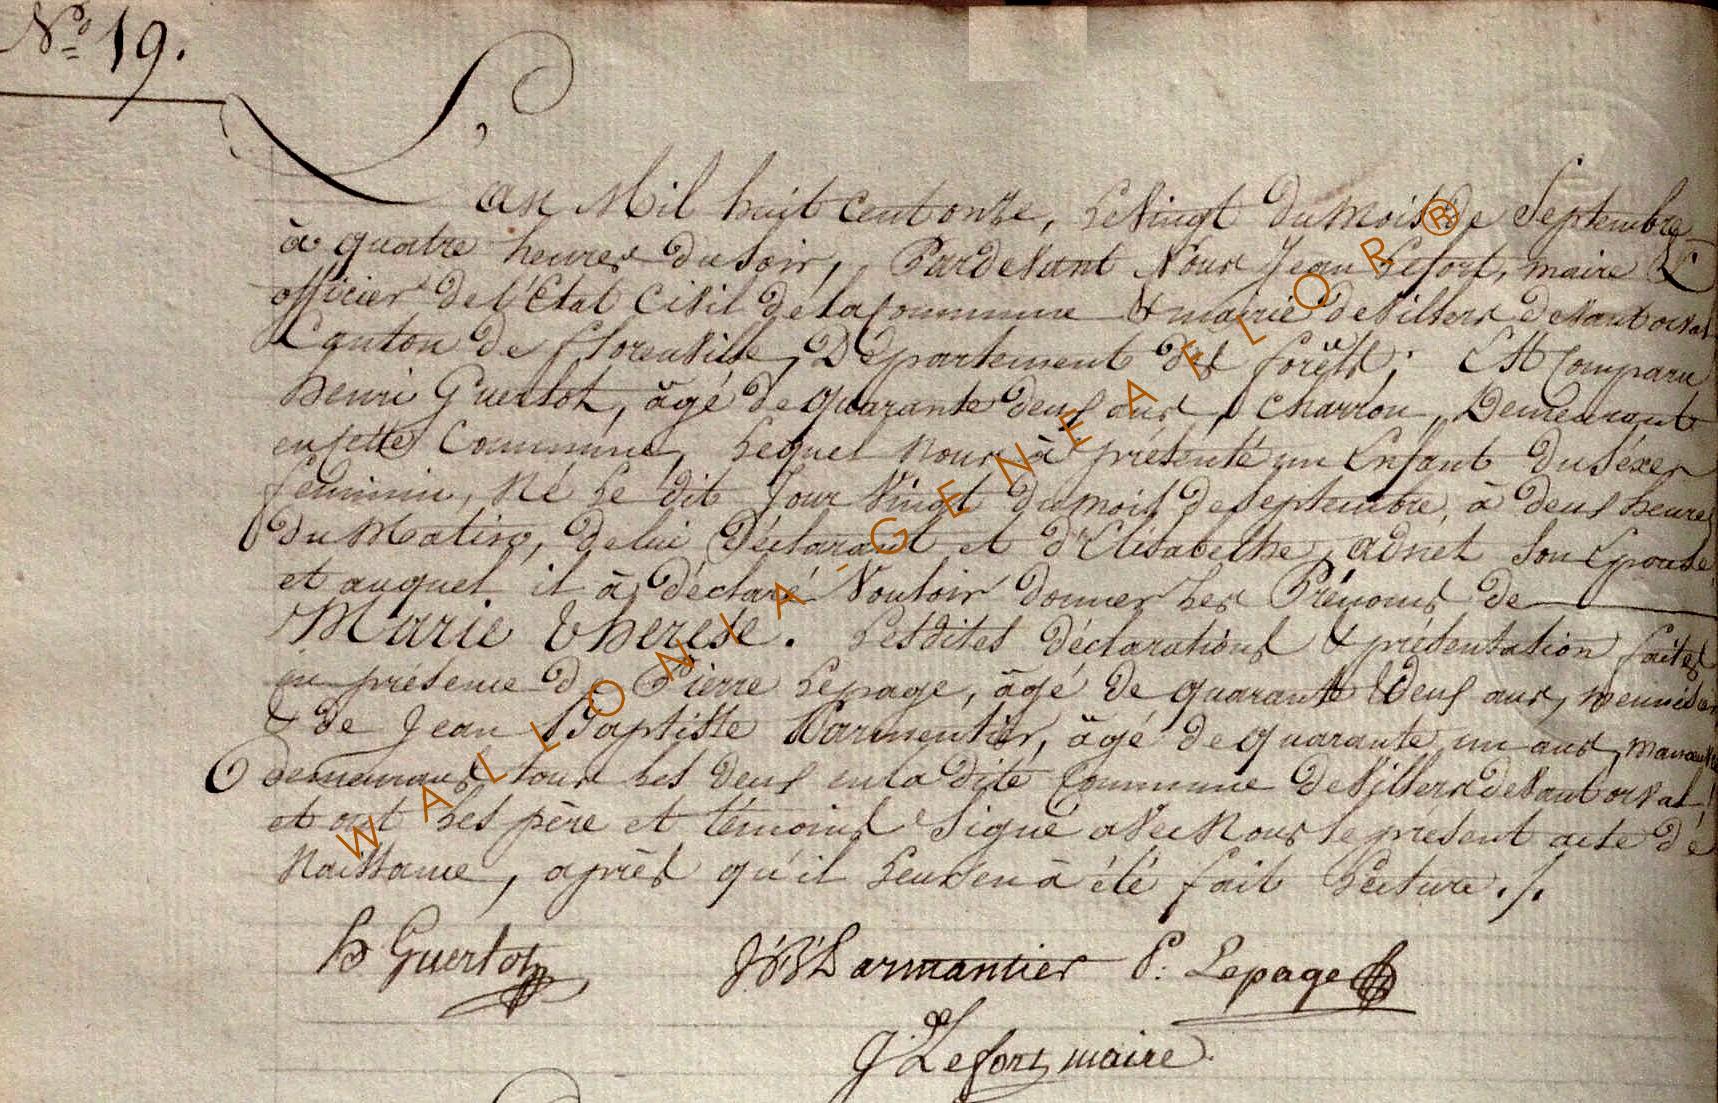 N.o 19.
L'an Mil huit cent onze, le Vingt du Mois de Septembre
à quatre heures du soir, Pardevant Nous Jean Lefort, maire &
officier de l'Etat Civil de la Commune & mairie de Villers devant orval
Canton de florenville, Département des forêts, Est Comparu
henri Guerlot, âgé de quarante deux ans, Charron, Demeurant
en cette Commune, Lequel nous à présenté un Enfant du séxe
féminin, Né Le dit Jour Vingt du mois de septembre, à deux heures
du Matin, de lui Déclarant et d'Elisabethe adnet son Epouse,
et auquel il à déclaré Vouloir donner Les Prénoms de
Marie therese. Lesdites déclarations & présentation faites
en présence de Pierre Lepage, âgé de quarante deux ans, menuisier
& de Jean Baptiste Parmentier, âgé de quarante un ans, manoeuvre
demeurans tous Les deux en la dite Commune de Villers devant orval,
et ont Les père et témoins Signé avec Nous le présent acte de
Naissance, après qu'il Leur en à été fait Lecture ./.
h Guerlot JB Parmantier P. Lepage
J. Lefort, maire
WALLONIA-GENEAFLOR®